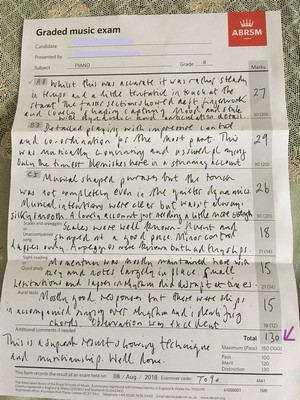 Graded music exam
ABRSM
Candidate
Presented by
Subject PIANO Grade 8 Marks
A3 Whilst this was accurate it was rather steady
in tempo and a little tentative in touch at the
start. The faster sections showed deft fingerwork
and lovely shaping capturing mood and style
with dynamic and articulation detail
27
30 (20)
B3 Detailed playing with impressive control
and co-ordination for the most part. This
was musically convincing and assured playing
Only the tiniest blemishes here in a stunning account
29
30 (20)
C5 Musical shaped phrases but the touch
was not completely even in the quieter dynamics.
Musical intentions were clear but wasn't always
silky smooth. A lovely account just needing a little more
26
30 (20)
Scales and arpeggios
or
Unaccompanied
song
Scales were well known - fluent and
shaped at a good pace. Minor control
lapses only. Arpeggios were known but had slips.
18
21 (14)
Sight-reading
Quick study
Momentum was mostly maintained here with
key and notes largely in place. Small
hesitations and lapses in rhythm did disrupt at times
15
21 (14)
Aural tests
Mostly good responses but there were slips
in accompanied singing over rhythm and identifying
chords. Observation was excellent
15
18 (12)
Additional comments if needed
Total 130
This is a superb result showing technique
and musicianship. Well done.
Maximum (Pass) 150 (100)
Pass 100
Merit 120
Distinction 130
This form records the result of an exam held on 08 / Aug / 2018 Examiner code: